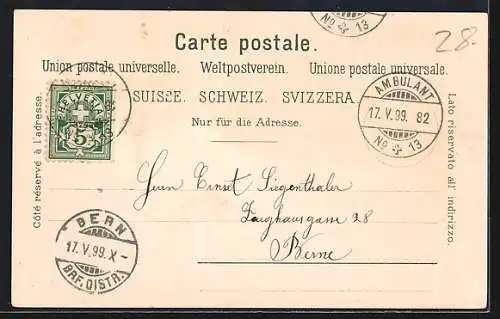 No 13
Carte postale.
28.-
Union postale universelle. Weltpostverein. Unione postale universale.
SUISSE. SCHWEIZ. SVIZZERA.
Nur für die Adresse.
Côté réservé à l'adresse.
Lato riservato all' indirizzo.
HELVETIA
5
AMBULANT
17. V. 99. 82
No 13
Herrn Ernst Siegenthaler
Zeughausgasse 28
Berne
BERN
17. V. 99. X -
BRF. DISTR.